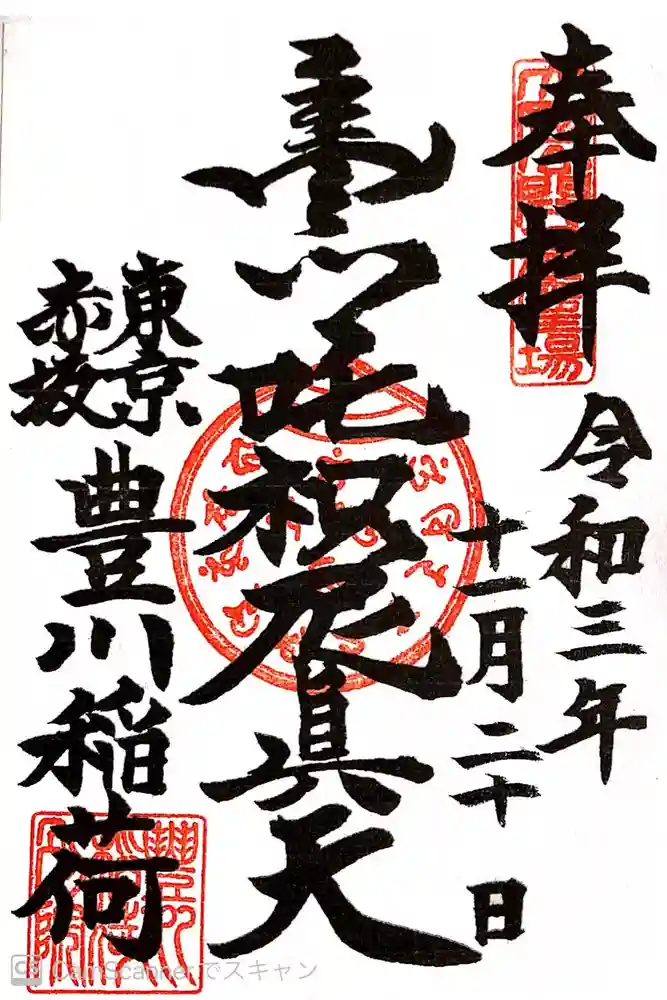 奉拝
令和三年
十一月二十日
荼吒枳尼真天
東京
赤坂
豊川稲荷
CamScannerでスキャン